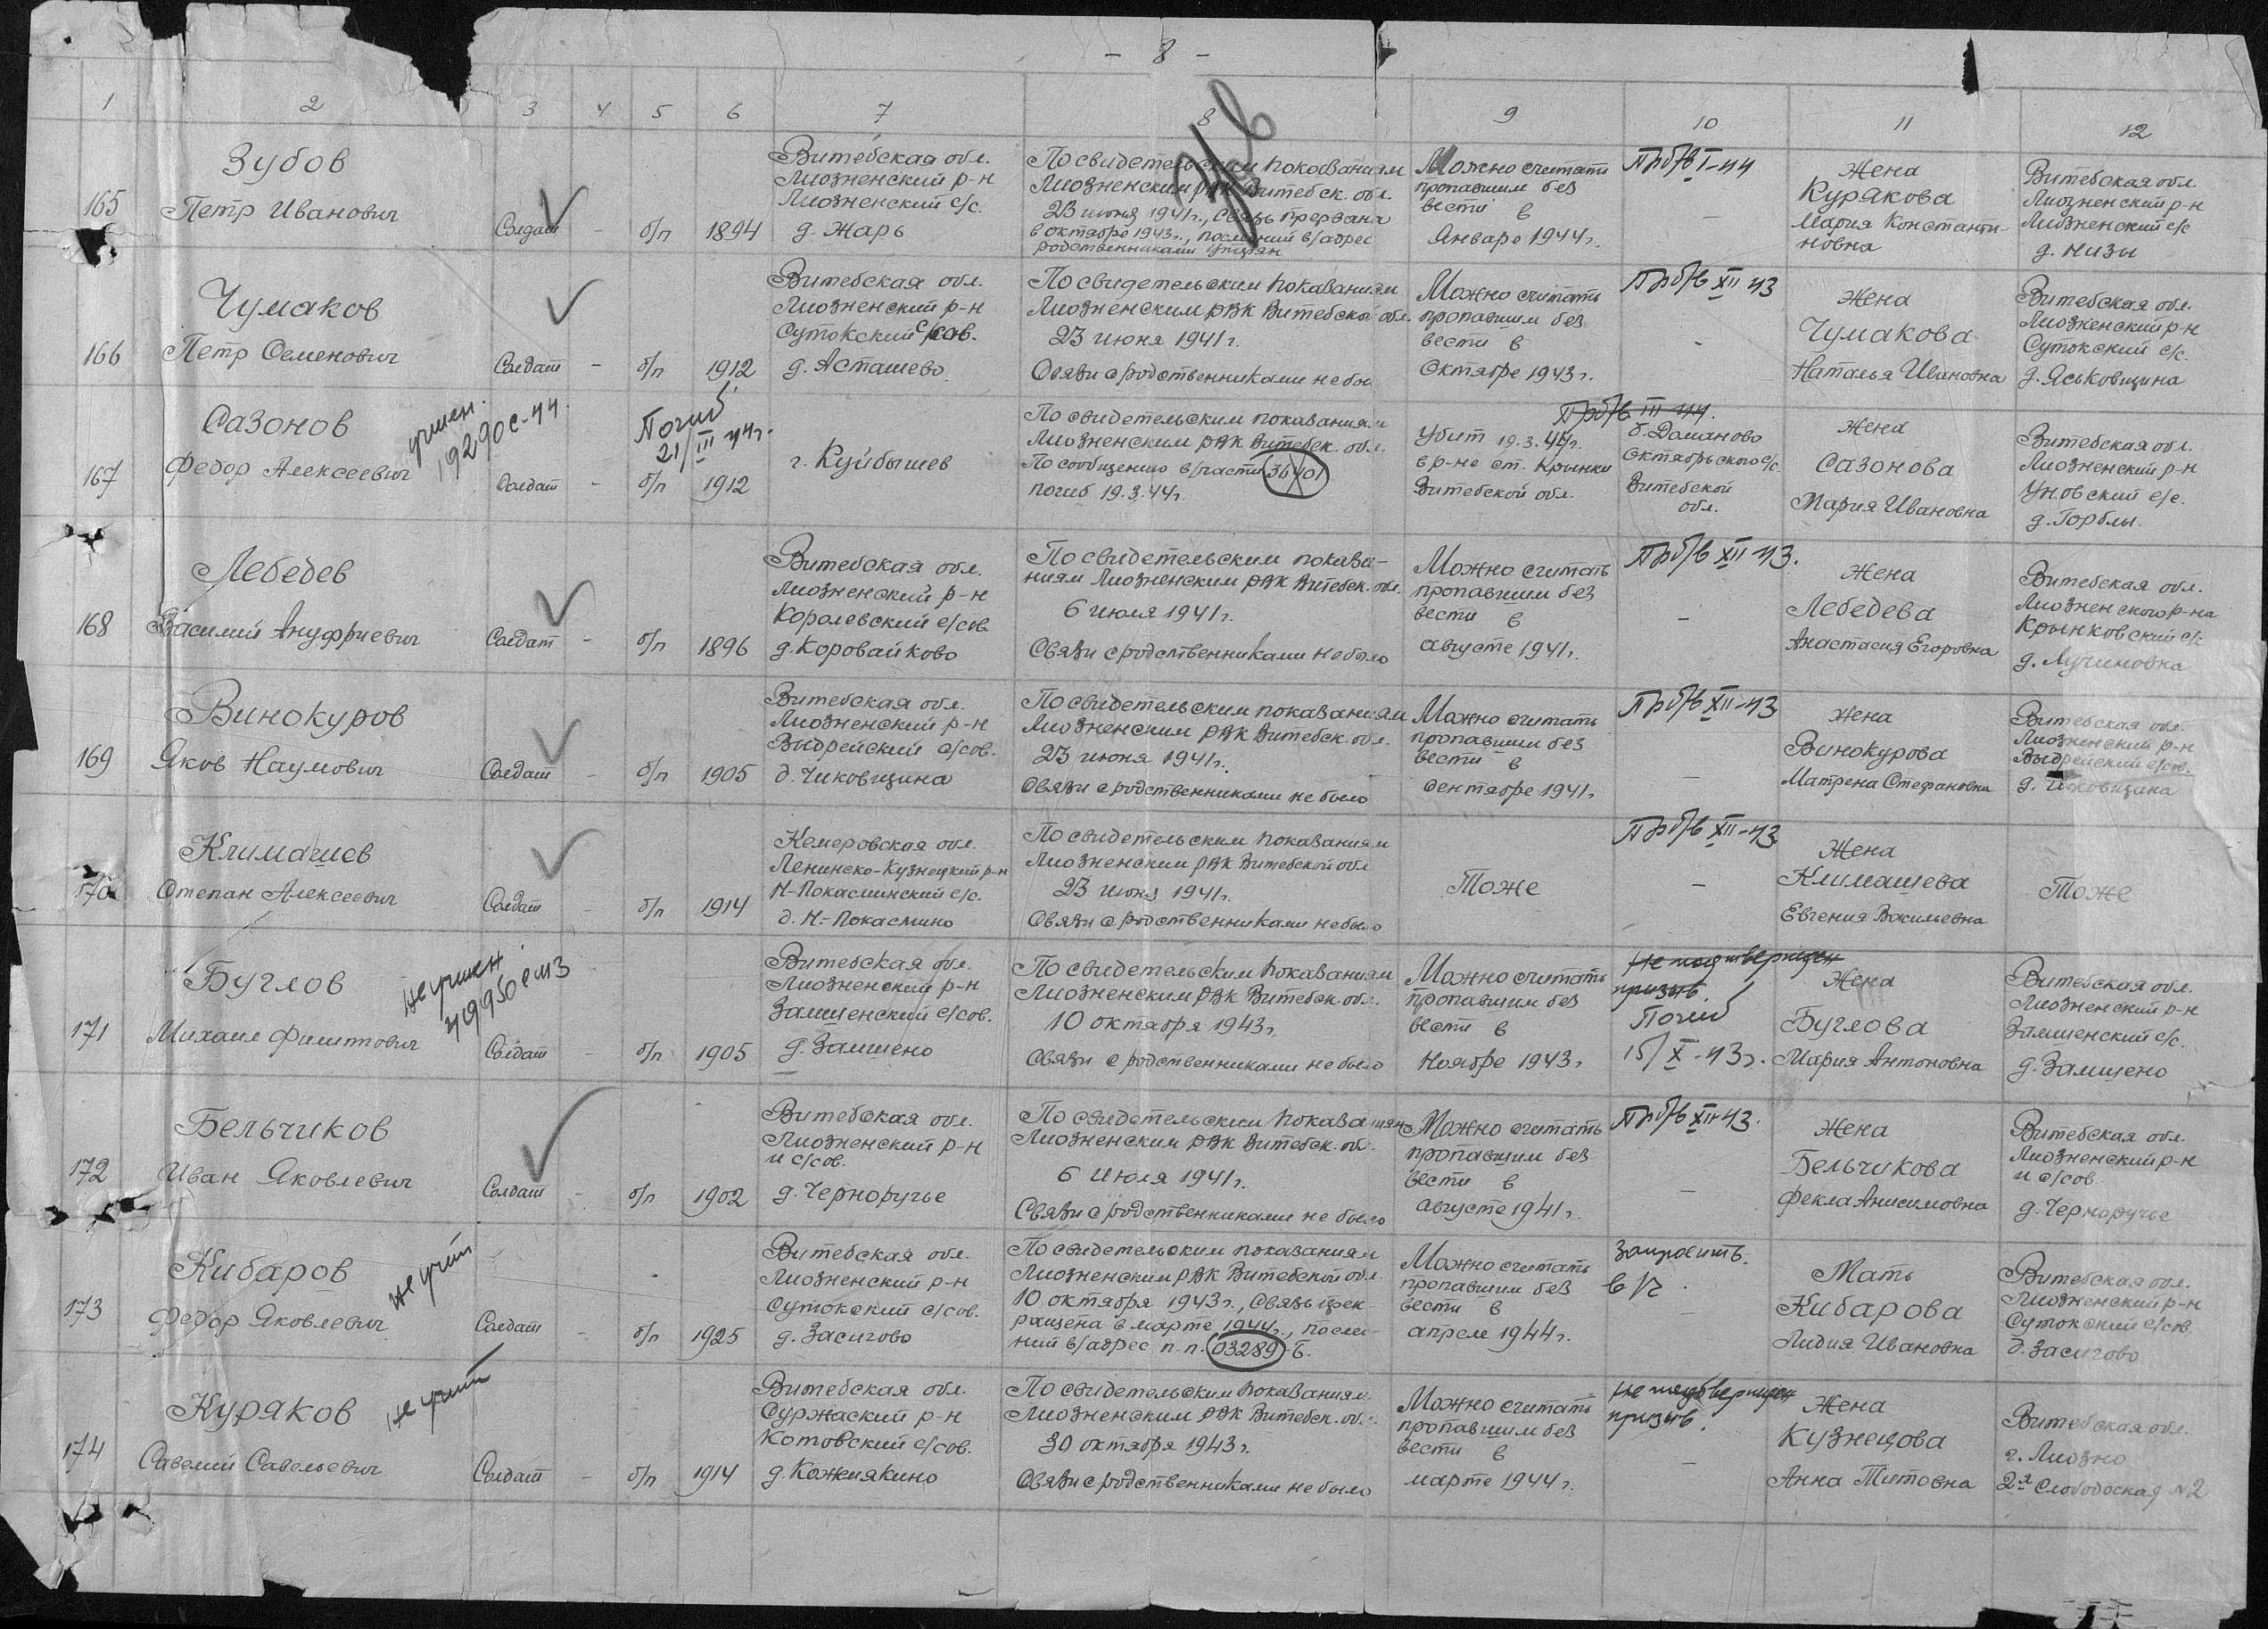 - 8 -
1 2 3 4 5 6 7 8 9 10 11 12
165
Зубов
Петр Иванович
Солдат - б/п 1894
Витебская обл.
Лиозненский р-н
Лиозненский с/с.
д. Жарь
По свидетельским показаниям
Лиозненским РВК Витебск. обл.
23 июня 1941г., связь прервана
в октябре 1943г., последний в/адрес
родственниками утерян
Можно считать
пропавшим без
вести в
Январе 1944г.
Пр б/в I-44
-
Жена
Курякова
Мария Константи-
новна
Витебская обл.
Лиозненский р-н
Лиозненский с/с
д. Низы
166
Чумаков
Петр Семенович
Солдат - б/п 1912
Витебская обл.
Лиозненский р-н
Сутокский с/сов.
д. Асташево
По свидетельским показаниям
Лиозненским РВК Витебской обл.
23 июня 1941г.
Связи с родственниками не бы
Можно считать
пропавшим без
вести в
Октябре 1943г.
Пр б/в XII 43
-
Жена
Чумакова
Наталья Ивановна
Витебская обл.
Лиозненский р-н
Сутокский с/с.
д. Яськовщина
167
Сазонов
Федор Алексеевич
учтен.
19290с-44.
Солдат - б/п 1912
Погиб
21/III 44г.
г. Куйбышев
По свидетельским показаниям
Лиозненским РВК Витебск. обл.
По сообщению в/части 35401
погиб 19.3.44г.
Убит 19.3.44г.
в р-не ст. Крынки
Витебской обл.
Пр б/в III-44.
б. Даманово
Октябрьского с/с.
Витебской
обл.
Жена
Сазонова
Мария Ивановна
Витебская обл.
Лиозненский р-н
Ун.овский с/с.
д. Горблы.
168
Лебедев
Василий Ануфриевич
Солдат - б/п 1896
Витебская обл.
Лиозненский р-н
Королевский с/сов
д. Коровайково
По свидетельским показа-
ниям Лиозненским РВК Витебск. обл.
6 июля 1941г.
Связи с родственниками не было
Можно считать
пропавшим без
вести в
августе 1941г.
Пр б/в XII-43.
-
Жена
Лебедева
Анастасия Егоровна
Витебская обл.
Лиозненского р-на
Крынковский с/с
д. Лучиновка
169
Винокуров
Яков Наумович
Солдат - б/п 1905
Витебская обл.
Лиозненский р-н
Выдрейский с/сов.
д. Чиковщина
По свидетельским показаниям
Лиозненским РВК Витебск. обл.
23 июня 1941г.
Связи с родственниками не было
Можно считать
пропавшим без
вести в
сентябре 1941г.
Пр б/в XII-43
-
Жена
Винокурова
Матрена Стефановна
Витебская обл.
Лиозненский р-н
Выдрейский с/сов.
д. Чиковщина
170
Климашев
Степан Алексеевич
Солдат - б/п 1914
Кемеровская обл.
Ленинско-Кузнецкий р-н
Н-Покаслинский с/с.
д. Н.-Покасмино
По свидетельским показаниям
Лиозненским РВК Витебской обл
23 июня 1941г.
Связи с родственниками не было
Тоже
Пр б/в XII-43
-
Жена
Климашева
Евгения Васильевна
Тоже
171
Буглов
Михаил Филиппович
Не учтен
Солдат - б/п 1905
Витебская обл.
Лиозненский р-н
Замшенский с/сов.
д. Замшено
По свидетельским показаниям
Лиозненским РВК Витебск. обл.
10 октября 1943г.
Связи с родственниками не было
Можно считать
пропавшим без
вести в
Ноябре 1943г.
Не подтвержден
призыв.
Погиб
15/X-43г.
Жена
Буглова
Мария Антоновна
Витебская обл.
Лиозненский р-н
Замшенский с/с.
д. Замшено
172
Бельчиков
Иван Яковлевич
Солдат - б/п 1902
Витебская обл.
Лиозненский р-н
и с/сов.
д. Черноручье
По свидетельским показаниям
Лиозненским РВК Витебск. об.
6 Июля 1941г.
Связи с родственниками не было
Можно считать
пропавшим без
вести в
августе 1941г.
Пр б/в XII-43.
-
Жена
Бельчикова
Фекла Анисимовна
Витебская обл.
Лиозненский р-н
и с/сов.
д. Черноручье
173
Кибаров
Федор Яковлевич
Не учтён
Солдат - б/п 1925
Витебская обл.
Лиозненский р-н
Сутокский с/сов.
д. Засигово
По свидетельским показаниям
Лиозненским РВК Витебской обл.
10 октября 1943г., связь прек-
ращена в марте 1944г., после-
ний в/адрес п.п. 03289-Б.
Можно считать
пропавшим без
вести в
апреле 1944г.
Запросить
в/ч.
-
Мать
Кибарова
Лидия Ивановна
Витебская обл.
Лиозненский р-н
Сутокский с/сов
д. Засигово
174
Куряков
Савелий Савельевич
Не учтён
Солдат - б/п 1914
Витебская обл.
Суржаский р-н
Котовский с/сов.
д. Кожмякино
По свидетельским показаниям
Лиозненским РВК Витебск. об.
30 октября 1943г.
Связи с родственниками не было
Можно считать
пропавшим без
вести в
марте 1944г.
Не подтвержден
призыв.
-
Жена
Кузнецова
Анна Титовна
Витебская обл.
г. Лиозно
2я Слободская №2